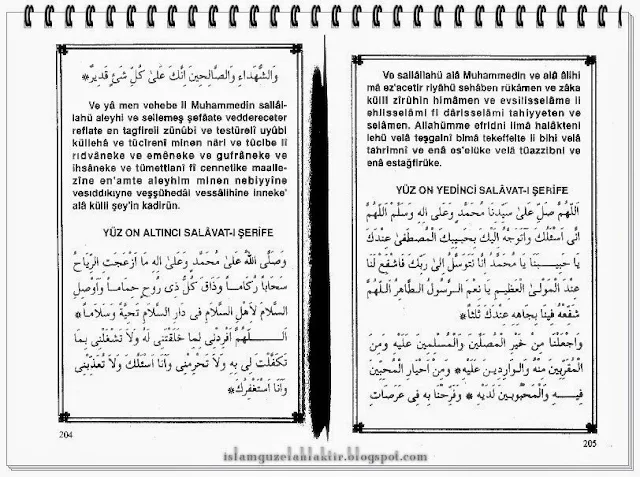 وَالشُّهَدَاءِ وَالصَّالِحِينَ اِنَّكَ عَلَىٰ كُلِّ شَىْءٍ قَدِيرٌ*
Ve yâ men vehebe li Muhammedin sallâl-
lahü aleyhi ve sellemeş şefâate veddereceter
reflate en tagfireli zünûbi ve testüreli uyûbi
küllehâ ve tücîreni minen nâri ve tücîbe li
rıdvâneke ve emêneke ve gufrâneke ve
ihsâneke ve tümettîani fî cennetike maalle-
zîne en'amte aleyhim minen nebiyyîne
vesıddıkıyne veşşühedâi vessâlihîne inneke'
alâ külli şey'in kadîrün.
YÜZ ON ALTINCI SALÂVAT-I ŞERİFE
وَصَلَّى اللّٰهُ عَلَىٰ مُحَمَّدٍ وَعَلَىٰ اٰلِهِ مَا اَزْعَجَتِ الرِّيَاحُ
سَحَابًا رُكَامًا وَذَاقَ كُلُّ ذِى رُوحٍ حِمَامًا وَاَوْصِلِ
السَّلَامَ لِاَهْلِ السَّلَامِ فِى دَارِ السَّلَامِ تَحِيَّةً وَسَلَامًا*
اَللّٰهُمَّ اَفْرِدْنِى لِمَا خَلَقْتَنِى لَهُ وَلَا تَشْغَلْنِى بِمَا
تَكَفَّلْتَ لِى بِهِ وَلَا تَحْرِمْنِى وَاَنَا اَسْئَلُكَ وَلَا تُعَذِّبْنِى
وَاَنَا اَسْتَغْفِرُكَ*
204
Ve sallâllahü alâ Muhammedin ve alâ âlihi
mâ ez'acetir riyâhü sehâben rükâmen ve zâka
külli zîrûhin himâmen ve evsilisselâme li
ehlisselâmi fî dârisselâmi tahiyyeten ve
selâmen. Allahümme efridni limâ halâkteni
lehü velâ teşgalnî bimâ tekeffelte li bihî velâ
tahrimnî ve enâ es'elüke velâ tüazzibni ve
enâ estağfirüke.
YÜZ ON YEDİNCİ SALÂVAT-I ŞERİFE
اَللّٰهُمَّ صَلِّ عَلَىٰ سَيِّدِنَا مُحَمَّدٍ وَعَلَىٰ اٰلِهِ وَسَلِّمْ اَللّٰهُمَّ
اِنِّى اَسْئَلُكَ وَاَتَوَجَّهُ اِلَيْكَ بِحَبِيبِكَ الْمُصْطَفَىٰ عِنْدَكَ
يَا حَبِيبَنَا يَا مُحَمَّدُ اِنَّا نَتَوَسَّلُ اِلَىٰ رَبِّكَ فَاشْفَعْ لَنَا
عِنْدَ الْمَوْلَى الْعَظِيمِ يَا نِعْمَ الرَّسُولُ الطَّاهِرُ اَللّٰهُمَّ
شَفِّعْهُ فِينَا بِجَاهِهِ عِنْدَكَ ثَلَاثًا*
وَاجْعَلْنَا مِنْ خَيْرِ الْمُصَلِّينَ وَالْمُسَلِّمِينَ عَلَيْهِ وَمِنَ
الْمُقَرَّبِينَ مِنْهُ وَالْوَارِدِينَ عَلَيْهِ* وَمِنْ اَخْيَارِ الْمُحِبِّينَ
فِيهِ وَالْمَحْبُوبِينَ لَدَيْهِ* وَفَرِّحْنَا بِهِ فِى عَرَصَاتِ
205
islamguzelahlaktir.blogspot.com